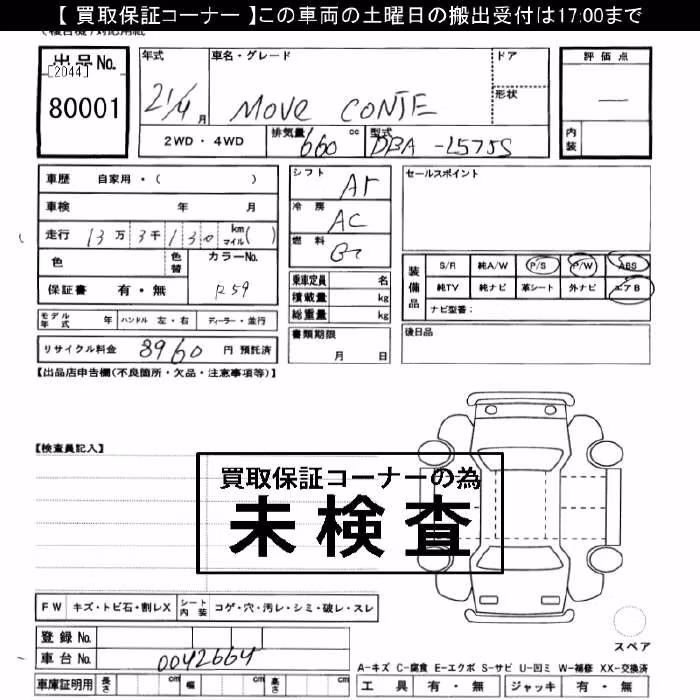 【 買取保証コーナー 】この車両の土曜日の搬出受付は17:00まで
出品No.
[2044]
80001
年式
21/4 月
車名・グレード
MOVE CONTE
ドア
形状
評価点
—
内装
2WD・4WD
排気量 660 cc
型式 DBA-L575S
車歴 自家用・( )
車検 年 月
走行 13万 3千 130 km マイル( )
色
色替
カラーNo.
R59
保証書 有・無
シフト AT
冷房 AC
燃料
乗車定員 名
積載量 kg
総重量 kg
セールスポイント
装備品
S/R 純A/W P/S P/W ABS
純TV 純ナビ 革シート 外ナビ エアB
ナビ型番:
モデル年式 年 ハンドル 左・右 ディーラー・並行
リサイクル料金 8960 円 預託済
書類期限
月 日
後日品
【出品店申告欄(不良箇所・欠品・注意事項等)】
【検査員記入】
買取保証コーナーの為
未検査
FW キズ・トビ石・割レX シート内装 コゲ・穴・汚レ・シミ・破レ・スレ
登録No.
車台No. 0042664
車庫証明用 長さ cm 幅 cm 高さ cm
スペア
A-キズ C-腐食 E-エクボ S-サビ U-凹ミ W-補修 XX-交換済
工具 有・無 ジャッキ 有・無